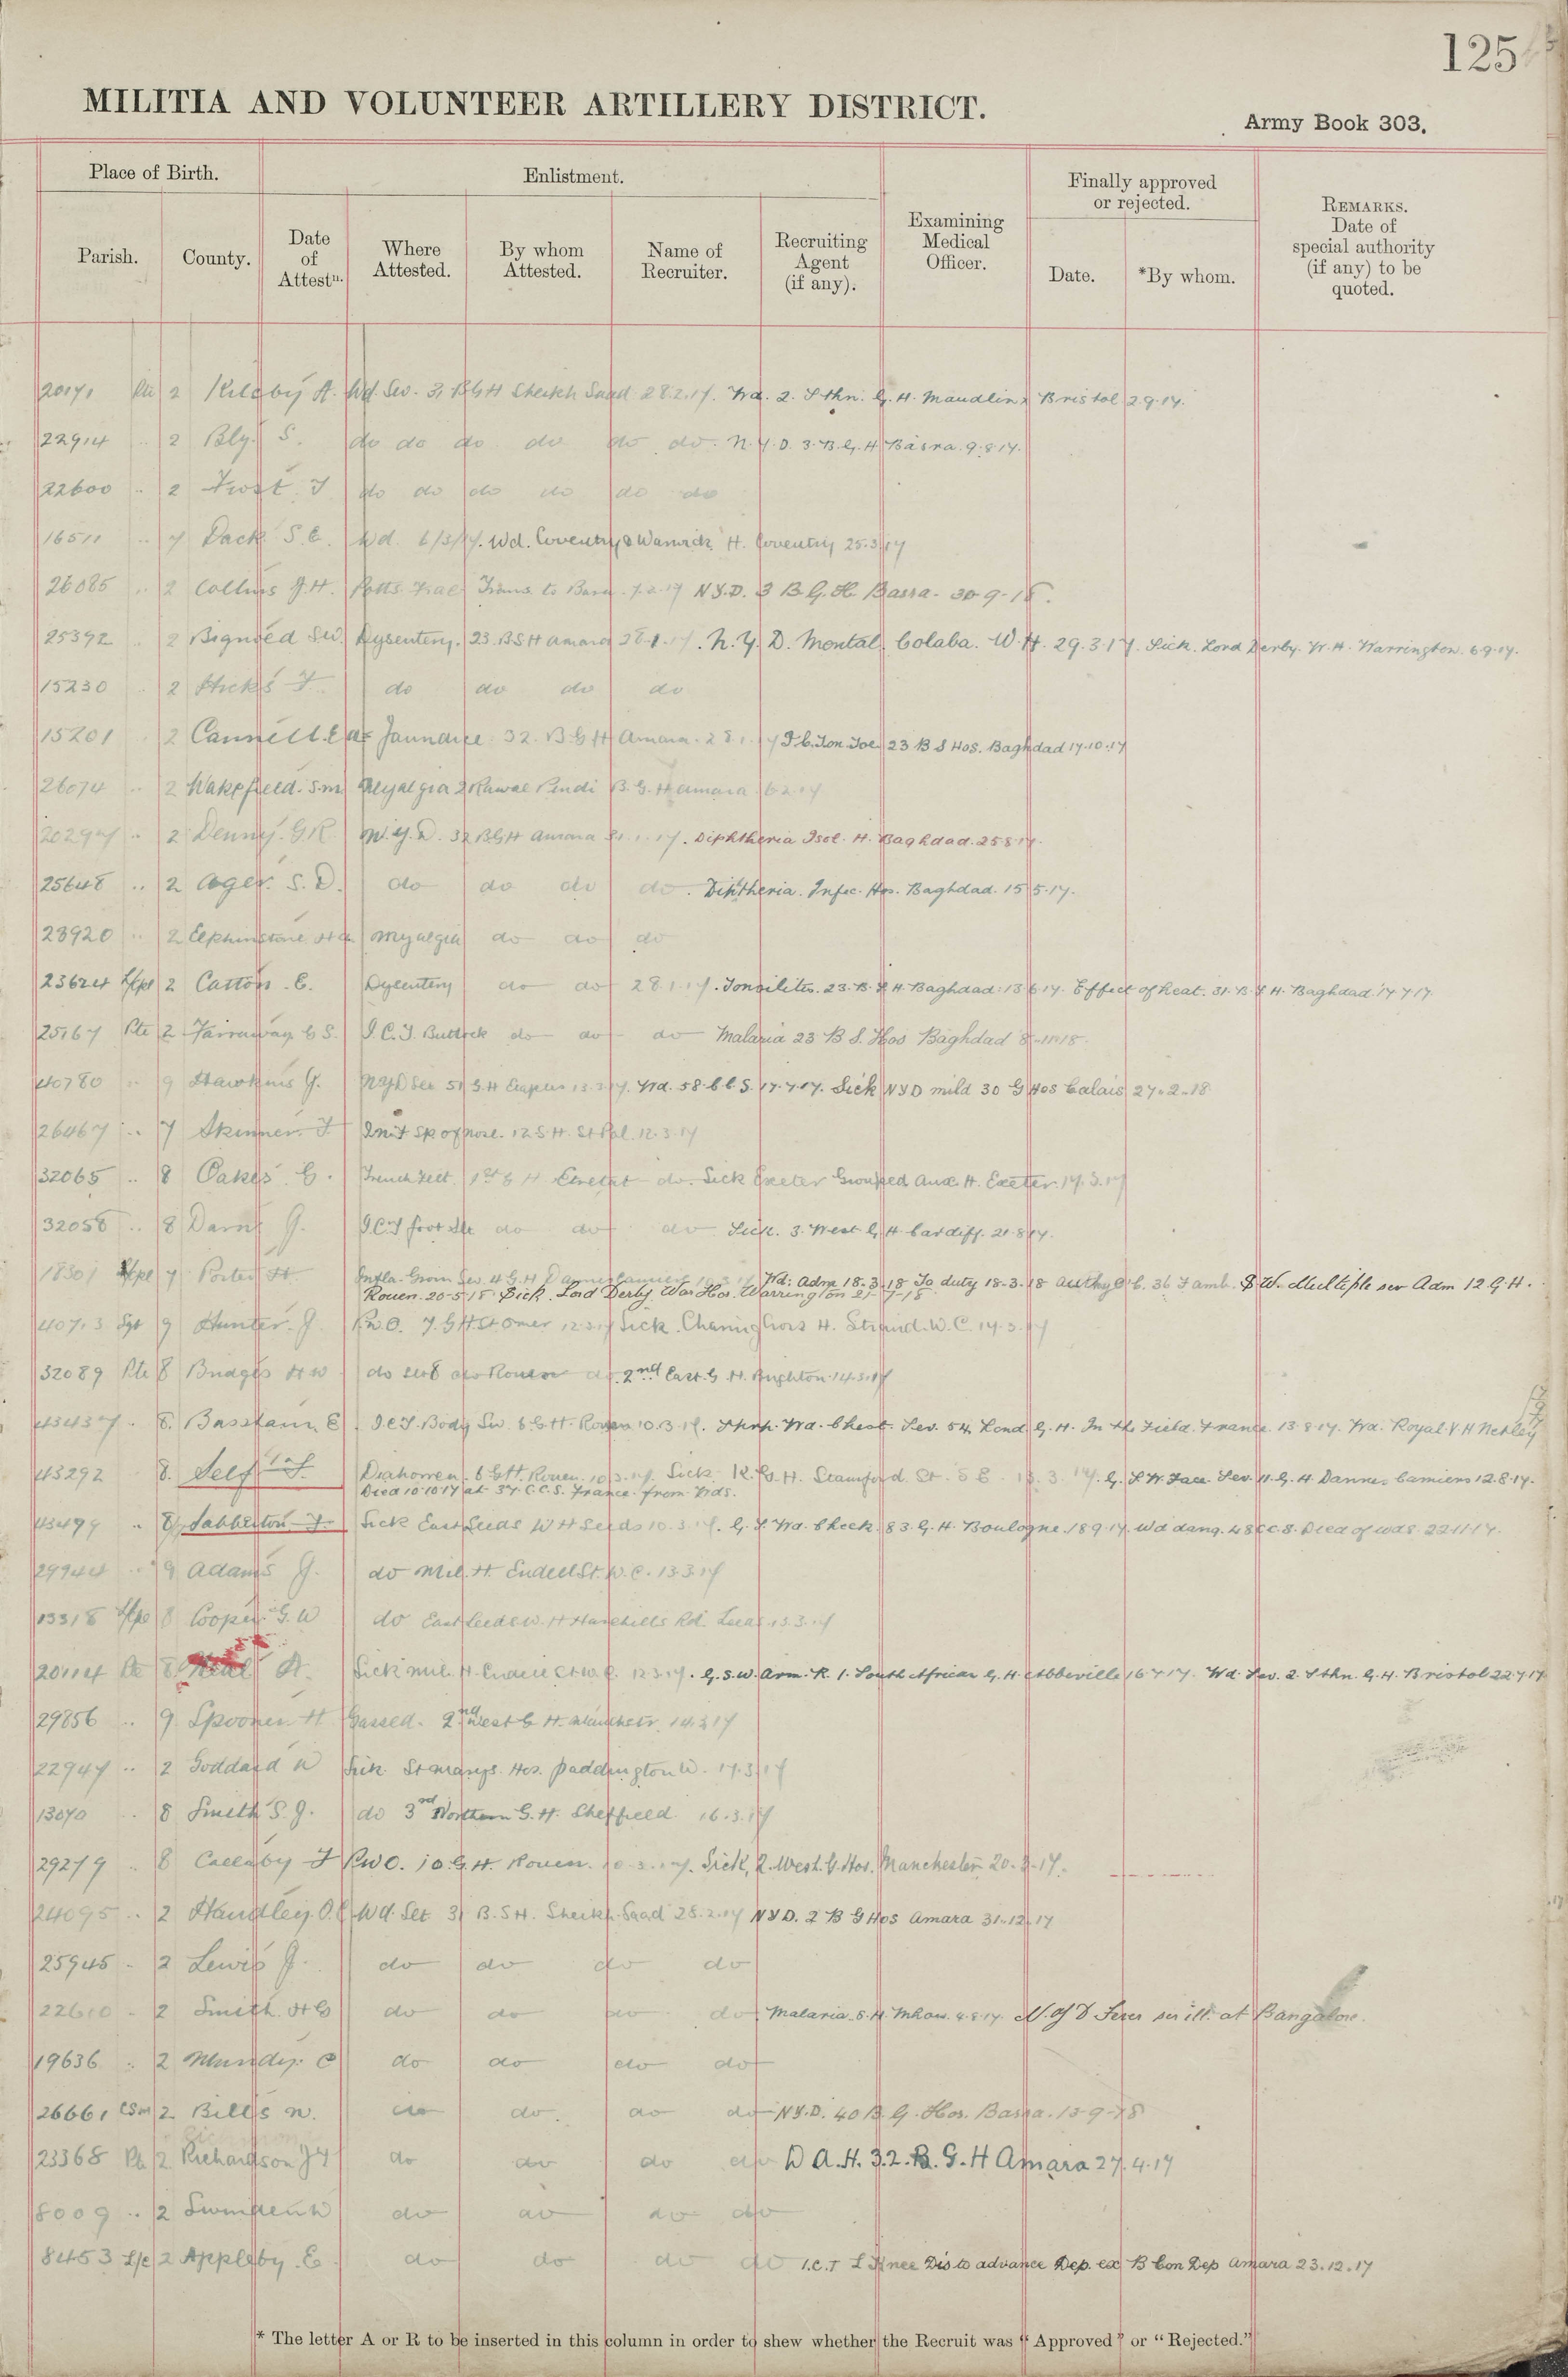 125
MILITIA AND VOLUNTEER ARTILLERY DISTRICT.
Army Book 303.
Place of Birth.
Enlistment.
Finally approved or rejected.
REMARKS. Date of special authority (if any) to be quoted.
Parish.
County.
Date of Attestn.
Where Attested.
By whom Attested.
Name of Recruiter.
Recruiting Agent (if any).
Examining Medical Officer.
Date.
*By whom.
2 A. Wd. Sev. 31 BGH Sheikh Saad 28.2.17. Wd. 2. Sthn. G. H. Maudlin, Bristol 2.9.17.
22914 .. 2 Bly. S. do do do do do do. N.Y.D. 3. B. G. H. Basra. 9.8.17.
22600 .. 2 Frost. J do do do do do do
16511 .. 7 Dack. S.E. Wd. 6/3/17. Wd. Coventry & Warwick H. Coventry 25.3.17
26085 .. 2 Collins J.H. Trans. to 7.2.17 N.Y.D. 3 B.G.H. Basra. 30-9-18.
25392 .. 2 Dysentery. 23. BSH Amara 28.1.17. N.Y.D. Mental. Colaba. W.H. 29.3.17. Sick. Lord Derby. W.H. Warrington. 6.9.17.
15230 .. 2 Hicks F. do do do do
15201 .. 2 Cannell. Jaundice. 32. B.G.H Amara. 28.1.17 23 B S Hos. Baghdad 17.10.17
26074 .. 2 Wakefield. S.M. Myalgia 2 Rawal Pindi B.G.H Amara 6.2.17
20297 .. 2 Denny. G.R. N.Y.D. 32 BGH Amara 31.1.17. Diphtheria Isol. H. Baghdad. 25.8.17.
25648 .. 2 Ager. S.D. do do do do. Diphtheria. Infec. Hos. Baghdad. 15.5.17.
23920 .. 2 Elphinstone Myalgia do do do
23624 L/Cpl 2 Caston. E. Dysentery do do 28.1.17. Tonsilitis. 23. B.S.H. Baghdad. 13.6.17. Effect of heat. 31. B.S.H. Baghdad. 17.7.17.
25167 Pte 2 Fairaway I.C.T. Buttock do do do Malaria 23 B S. Hos Baghdad
40780 .. 9 Hawkins G. 51 S.H Etaples 13.3.17. Wd. 58. C.C.S. 17.7.17. Sick NYD mild 30 G Hos Calais 27-2-18
26467 .. 7 Skinner. J. of nose. 12 S.H. St Pol. 12.3.17
32065 .. 8 Oakes. C. Trench feet. 1st G H Etretat do. Sick Exeter Grouped Aux. H. Exeter. 17.3.17
32058 .. 8 G. I.C.T foot do do do Sick. 3. West G.H Cardiff. 21.8.17.
7 Porter H. Groin Sev. 4 G.H Wd: Adm 18-3-18 To duty 18-3-18 Authy 36 F amb. G.S.W. Multiple sev Adm 12 G.H.
Rouen. 20-5-18 Sick. Lord Derby War Hos. Warrington
9 Hunter. J. P.U.O. 7. G.H St Omer 12.3.17 Sick. Charing Cross H. Strand. W.C. 17.3.17
32089 Pte 8 Bridges H W do do Rouen do. 2nd East. G.H. Brighton. 14.3.17
43437 .. 8. I.C.T. Body Sev 6 G.H. Rouen 10.3.17. Wd. Chest. Sev. 54 Lond. G.H. In the Field. France. 13.8.17. Wd. Royal V H Netley
43292 8. Self Diahorrea. 6 G.H. Rouen. 10.3.17. Sick. H. Stamford. St. S E. 13.3.17. G.S.W. Face. Sev. 11. G.H. Dannes Camiers 12.8.17.
Died 10.10.17 at 37. C.C.S. France. from Wds.
.. 8 Sabberton. F. Sick East Leeds W H Leeds 10.3.17. G.S. Wd. Cheek. 83. G.H. Boulogne. 18.9.17. Wd dang. 48 C.C.S. Died of wds 22.11.17.
29944 .. 9 Adams J. do Mil. H. Endell St. W.C. 13.3.17
13318 8 Cooper. G.W do East Leeds W. H Harehills Rd. Leeds 13.3.17
20114 Pte 8 Neal A. Sick Mil. H. Endell St W.C. 12.3.17. G.S.W. Arm. R. 1. South African G.H. Abbeville 16.7.17. Wd. Sev. 2. Sthn. G.H. Bristol 22.7.17
29856 .. 9. Spooner. H Gassed. 2nd West G H. Manchstr. 14.3.17
22947 .. 2 Goddard W Sick St Marys. Hos. Paddington W. 17.3.17
13070 .. 8 Smith S.G. do 3rd Northern G.H. Sheffield 16.3.17
29279 .. 8 Callaby J P.U.O. 10. G.H. Rouen. 10.3.17. Sick, 2. West. G. Hos. Manchester 20.3.17.
24095 .. 2 Handley. Wd. 31 B.S H. Sheikh Saad 28.2.17 N Y D. 2 B G Hos Amara 31.12.17
25945 .. 2 Lewis J. do do do do
2 Smith. do do do do Malaria. S.H. Mhow. 4.8.17. ser ill. at Bangalore.
19636 .. 2 Munday. C do do do do
26661 CSM 2 Bills N. do do. do do N.Y.D. 40 B.G. Hos. Basra. 13-9-18
23368 2 Richardson do do do do D.A.H. 32. B.G.H Amara 27.4.17
8009 .. 2 do do do do
8453 L/C 2 Appleby. E do do do do I.C.T L Knee Dis to advance Dep. ex B Con Dep Amara 23.12.17
* The letter A or R to be inserted in this column in order to shew whether the Recruit was "Approved" or "Rejected."